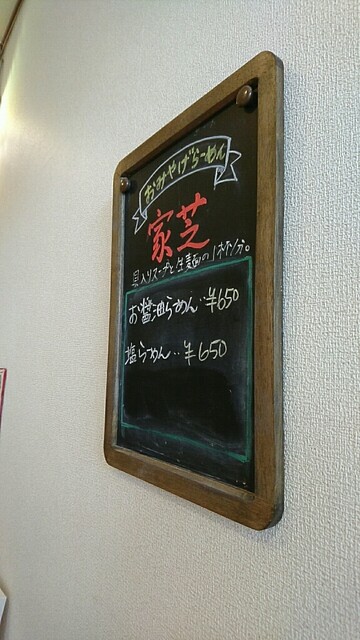 おみやげらーめん
家芝
具入りスープと生麺の1杯分。
お醤油らーめん‥¥650
塩らーめん‥¥650